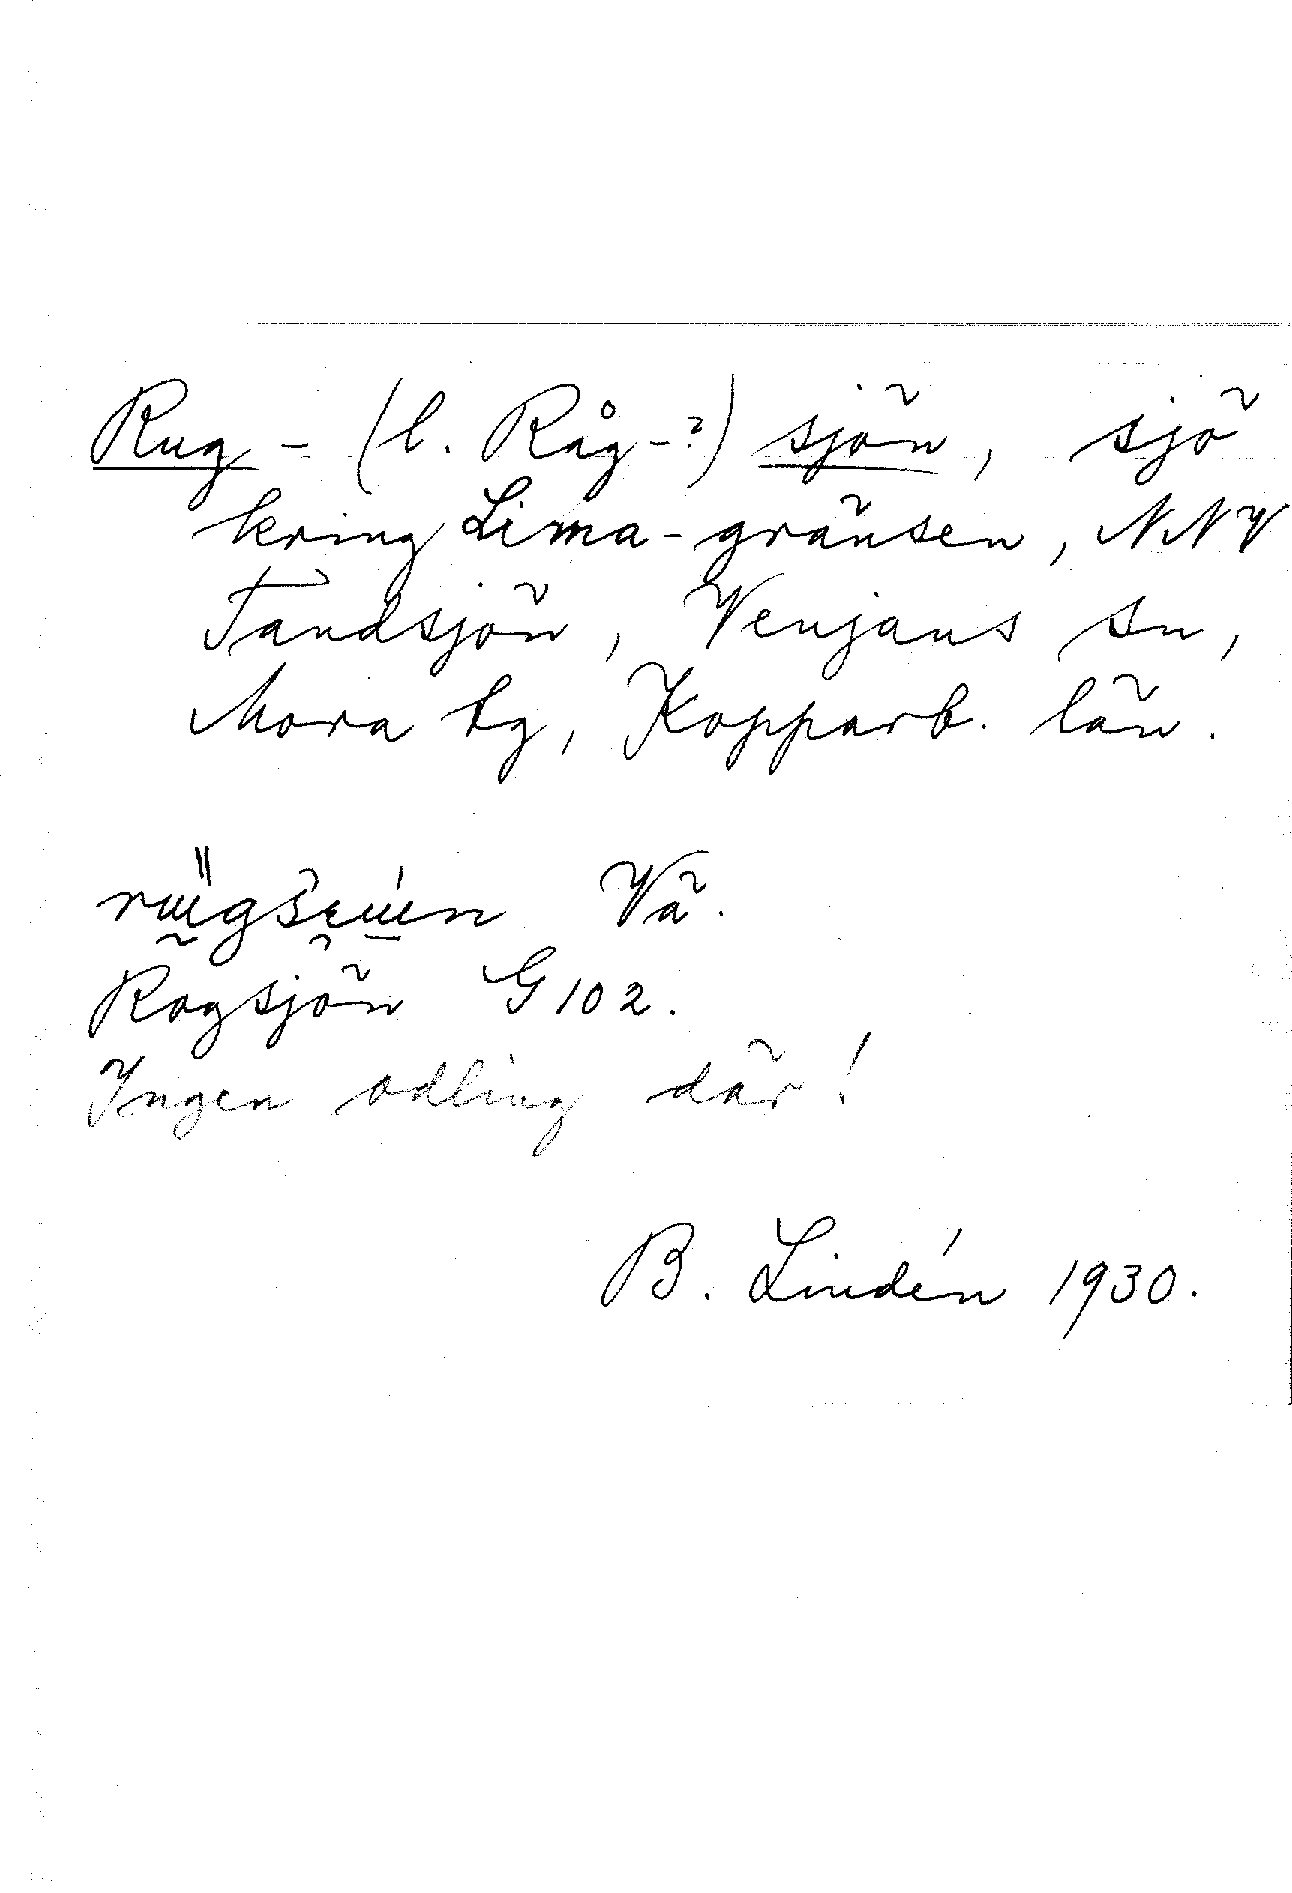 Rug - (l. Råg-?) sjön, sjö
kring Lima-gränsen, NNV
Tandsjön, Venjans sn,
Mora tg, Kopparb. län.
Vä.
Rogsjön G 102.
Ingen odling där!
B. Lindén 1930.